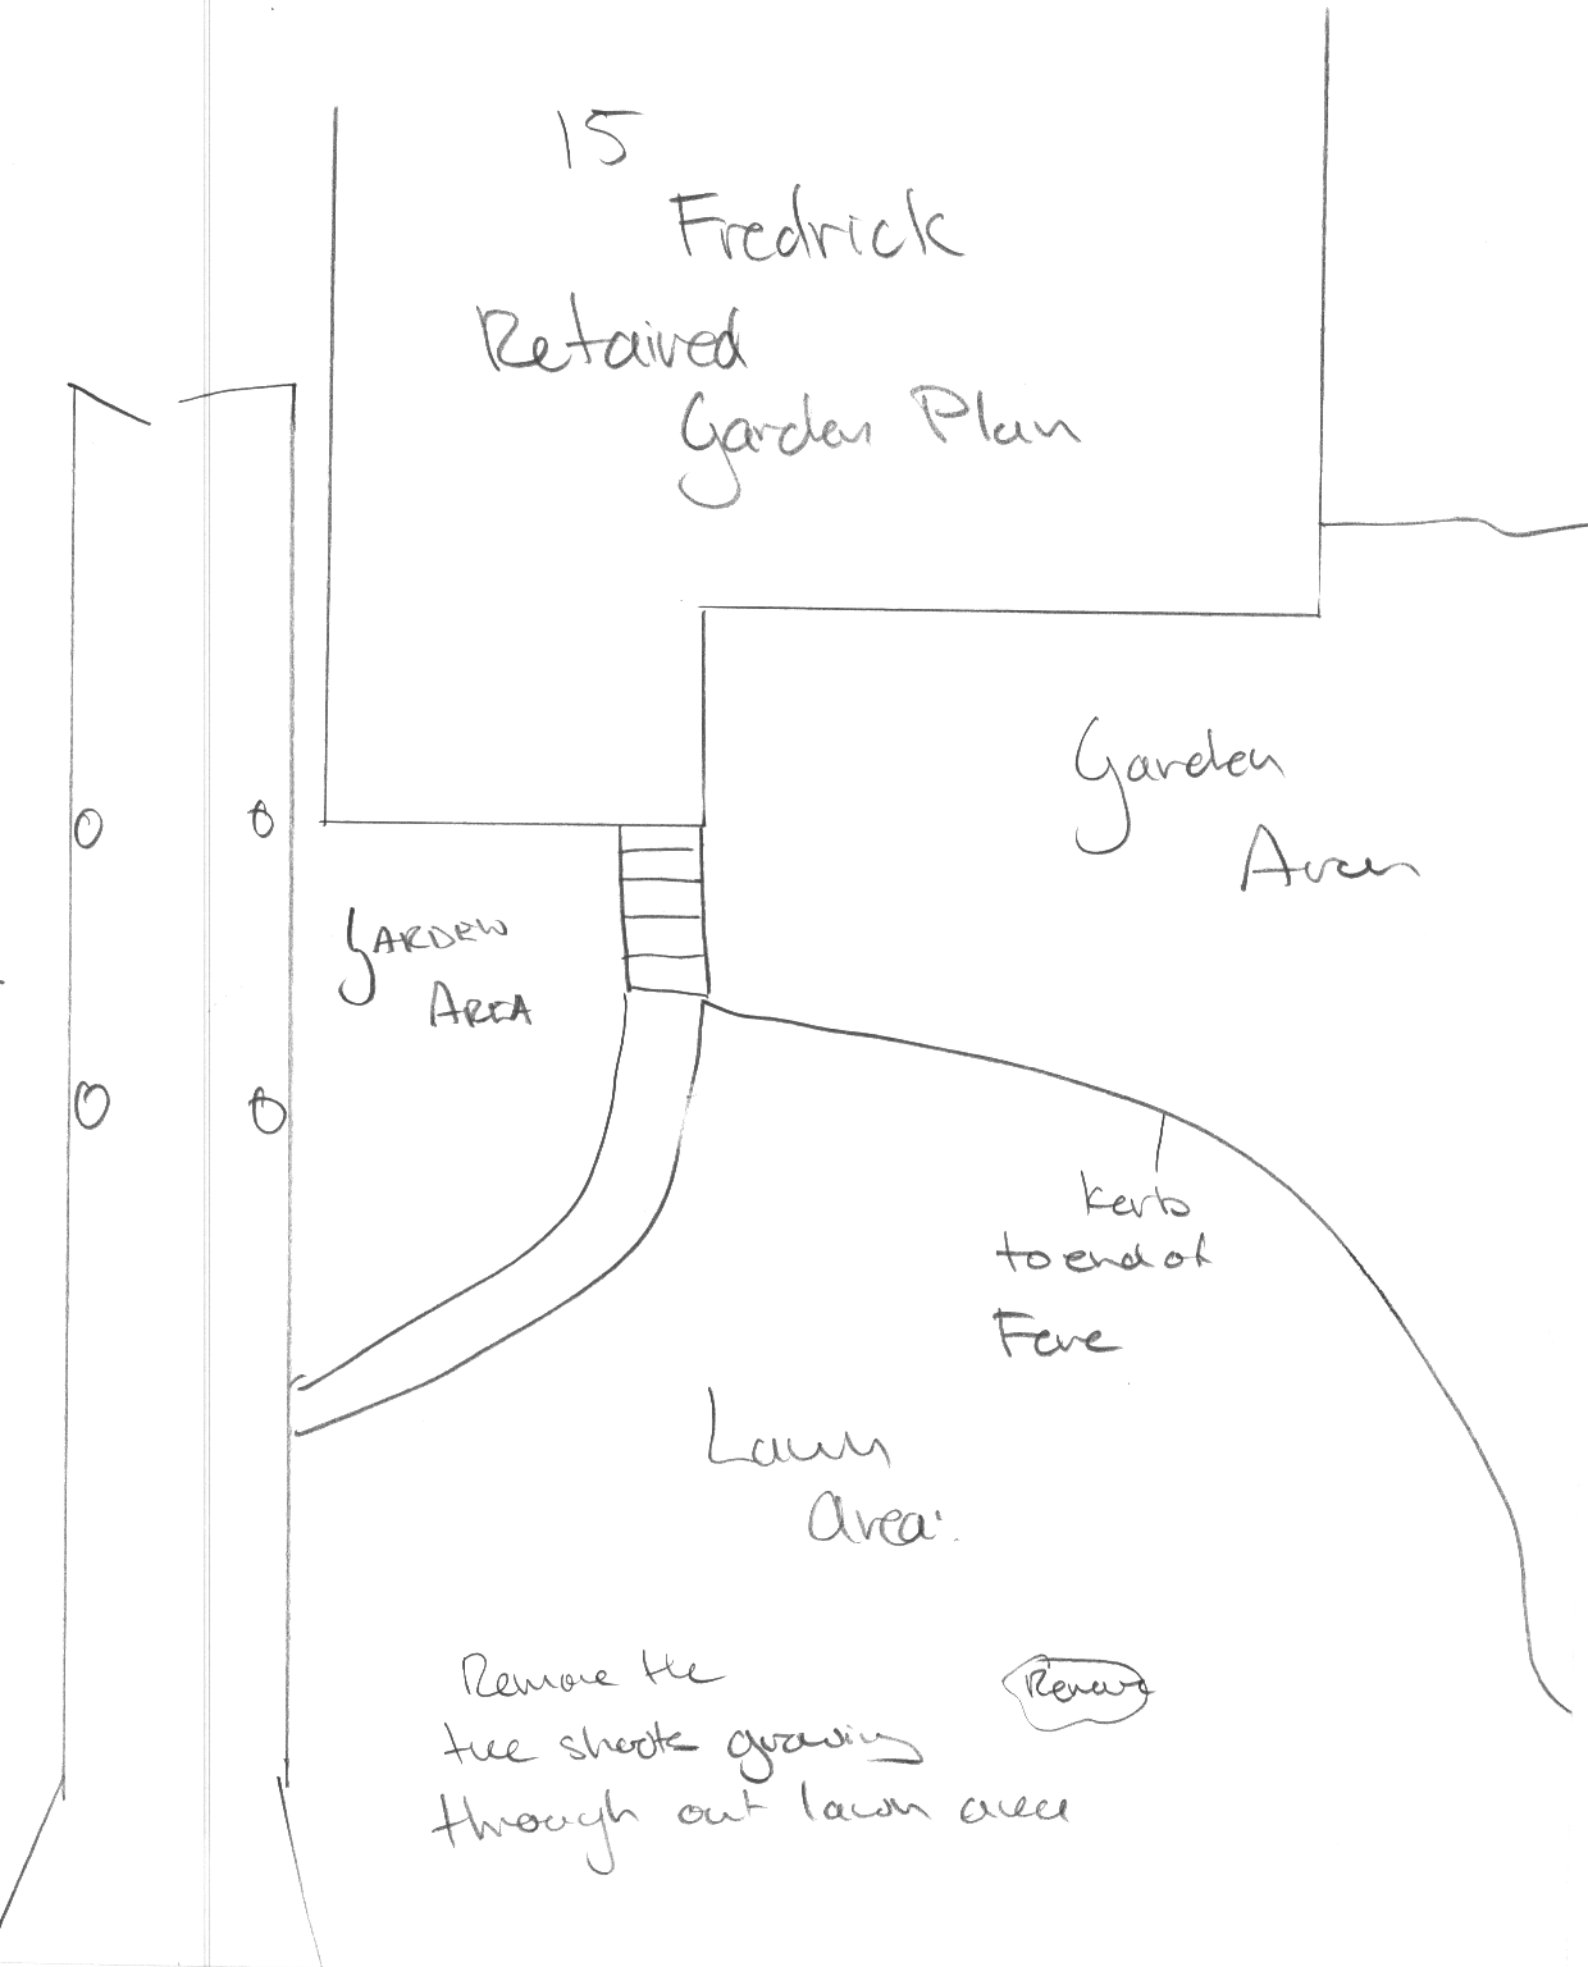 15
Fredrick
Retained
Garden Plan
Garden
Area
GARDEN
AREA
Kerb
to end of
Fence
Lawn
area:
Remove the
tree shoots growing
through out lawn area
Remove